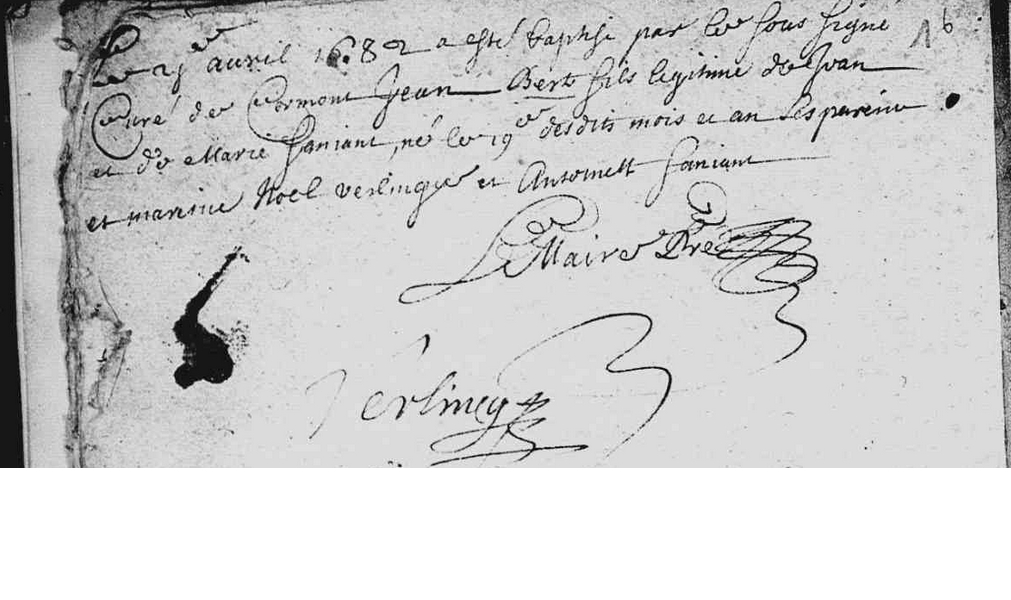 Le 21e avril 1682 a esté baptisé par le sous signé
Curé de Cormont Jean Bert fils legitime de Jean
et de Marie faniant, né le 19e desdits mois et an Les parein
et mareine Noel verlingue et Antoinett faniant
Le Maire Pre
Verlincq
16